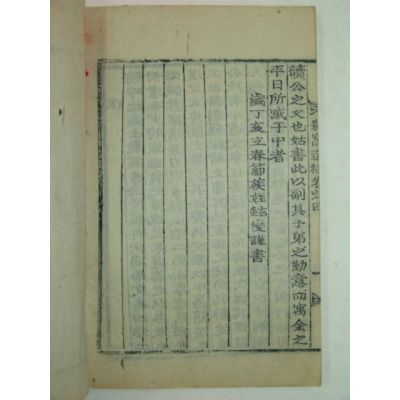 讀公之文也姑書此以副其子弟之勤意而寓余之
平日所感于中者
歲丁亥立春節族姪鉉燮謹書